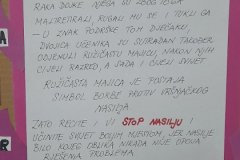 RAKA DOŠLE NJEGA SU ZBOG TOGA
MALTRETIRALI, RUGALI MU SE I TUKLI GA
- U ZNAK PODRŠKE TOM DJEČAKU,
DVOJICA UČENIKA SU SUTRADAN TAKOĐER
ODJENULI RUŽIČASTU MAJICU, NAKON NJIH
CIJELI RAZRED, A SADA I CIJELI SVIJET
RUŽIČASTA MAJICA JE POSTALA
SIMBOL BORBE PROTIV VRŠNJAČKOG
NASILJA
ZATO RECITE I VI STOP NASILJU I
UČINITE SVIJET BOLJIM MJESTOM, JER NASILJE
BILO KOJEG OBLIKA NIKADA NIJE OPCIJA
RJEŠENJA PROBLEMA